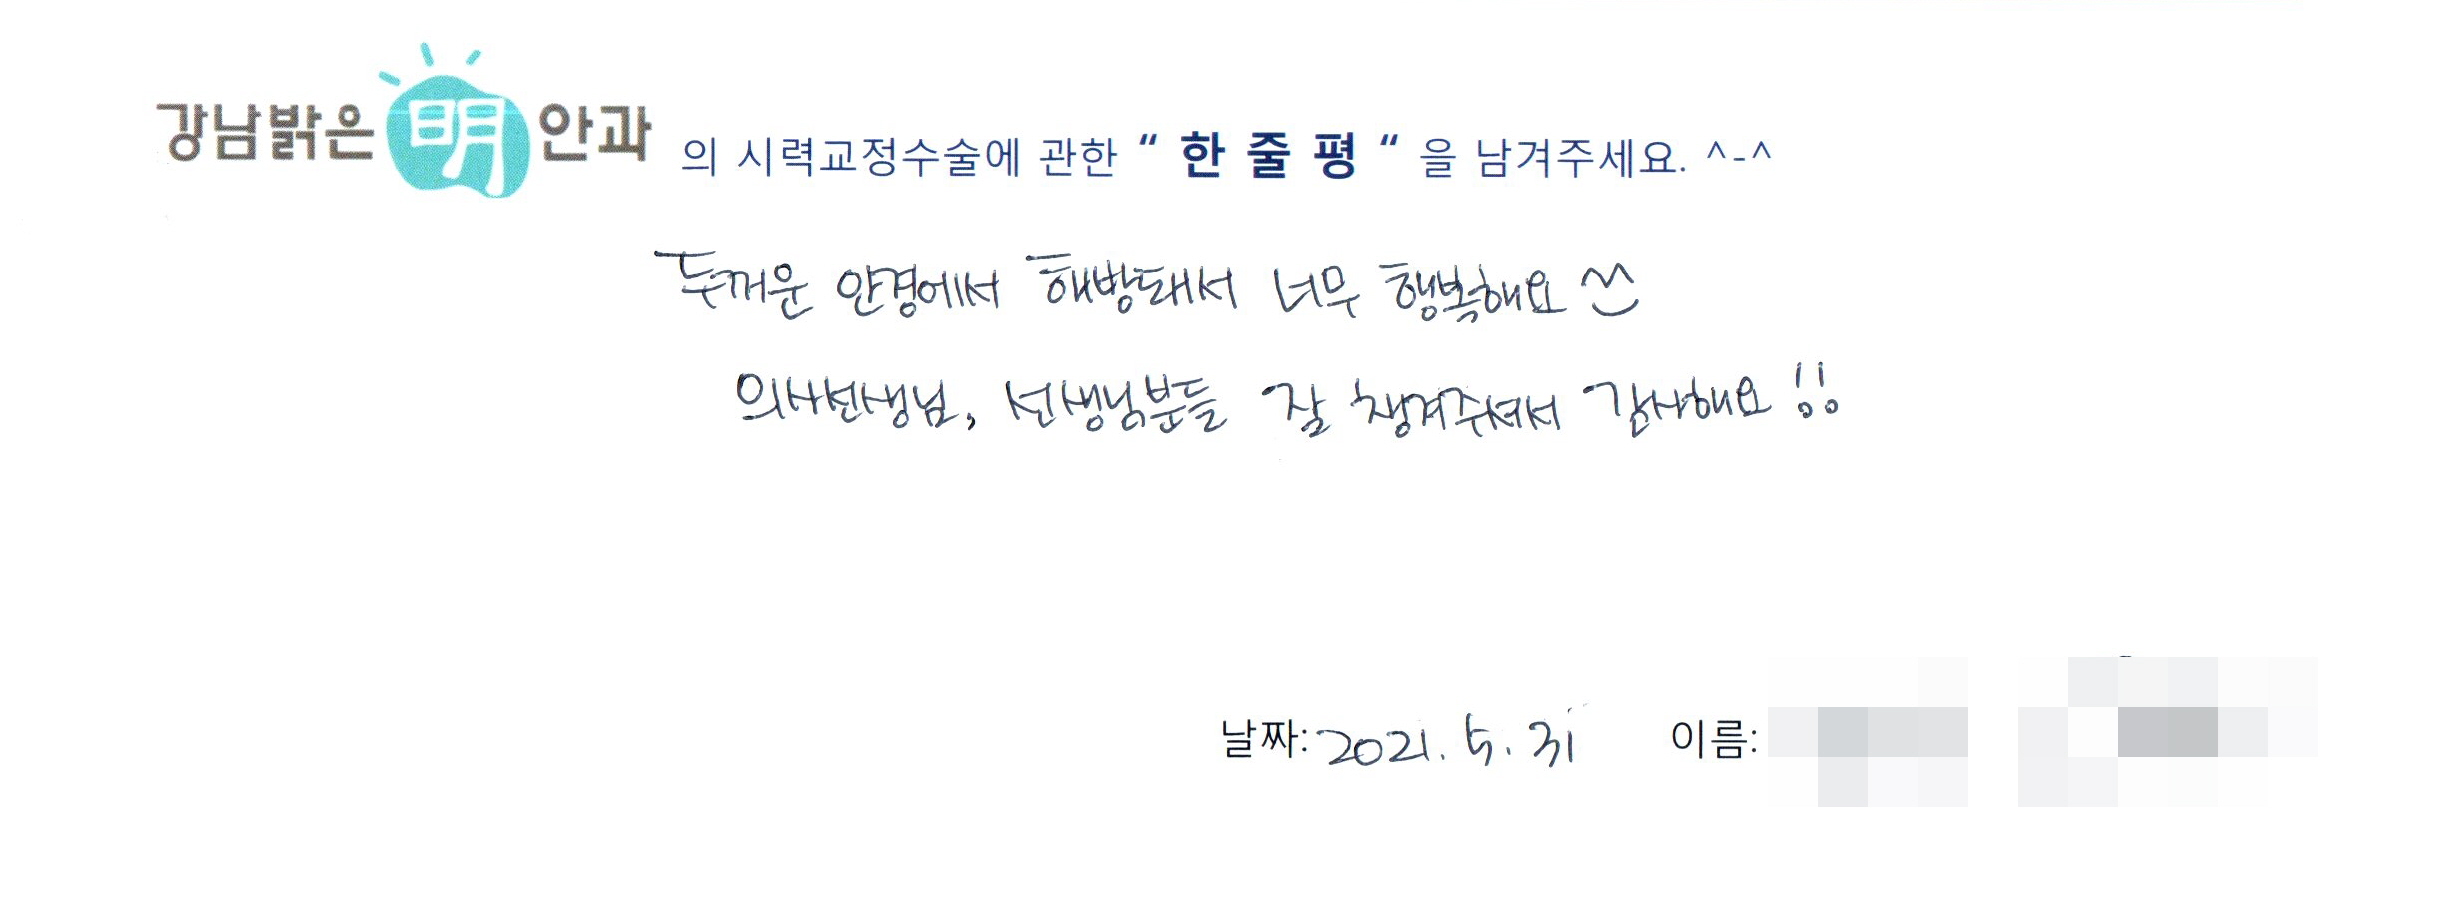 강남밝은明안과 의 시력교정수술에 관한 “ 한 줄 평 “ 을 남겨주세요. ^-^
두꺼운 안경에서 해방돼서 너무 행복해요 ^^
의사선생님, 선생님분들 잘 챙겨주셔서 감사해요!!
날짜: 2021. 5. 31 이름: